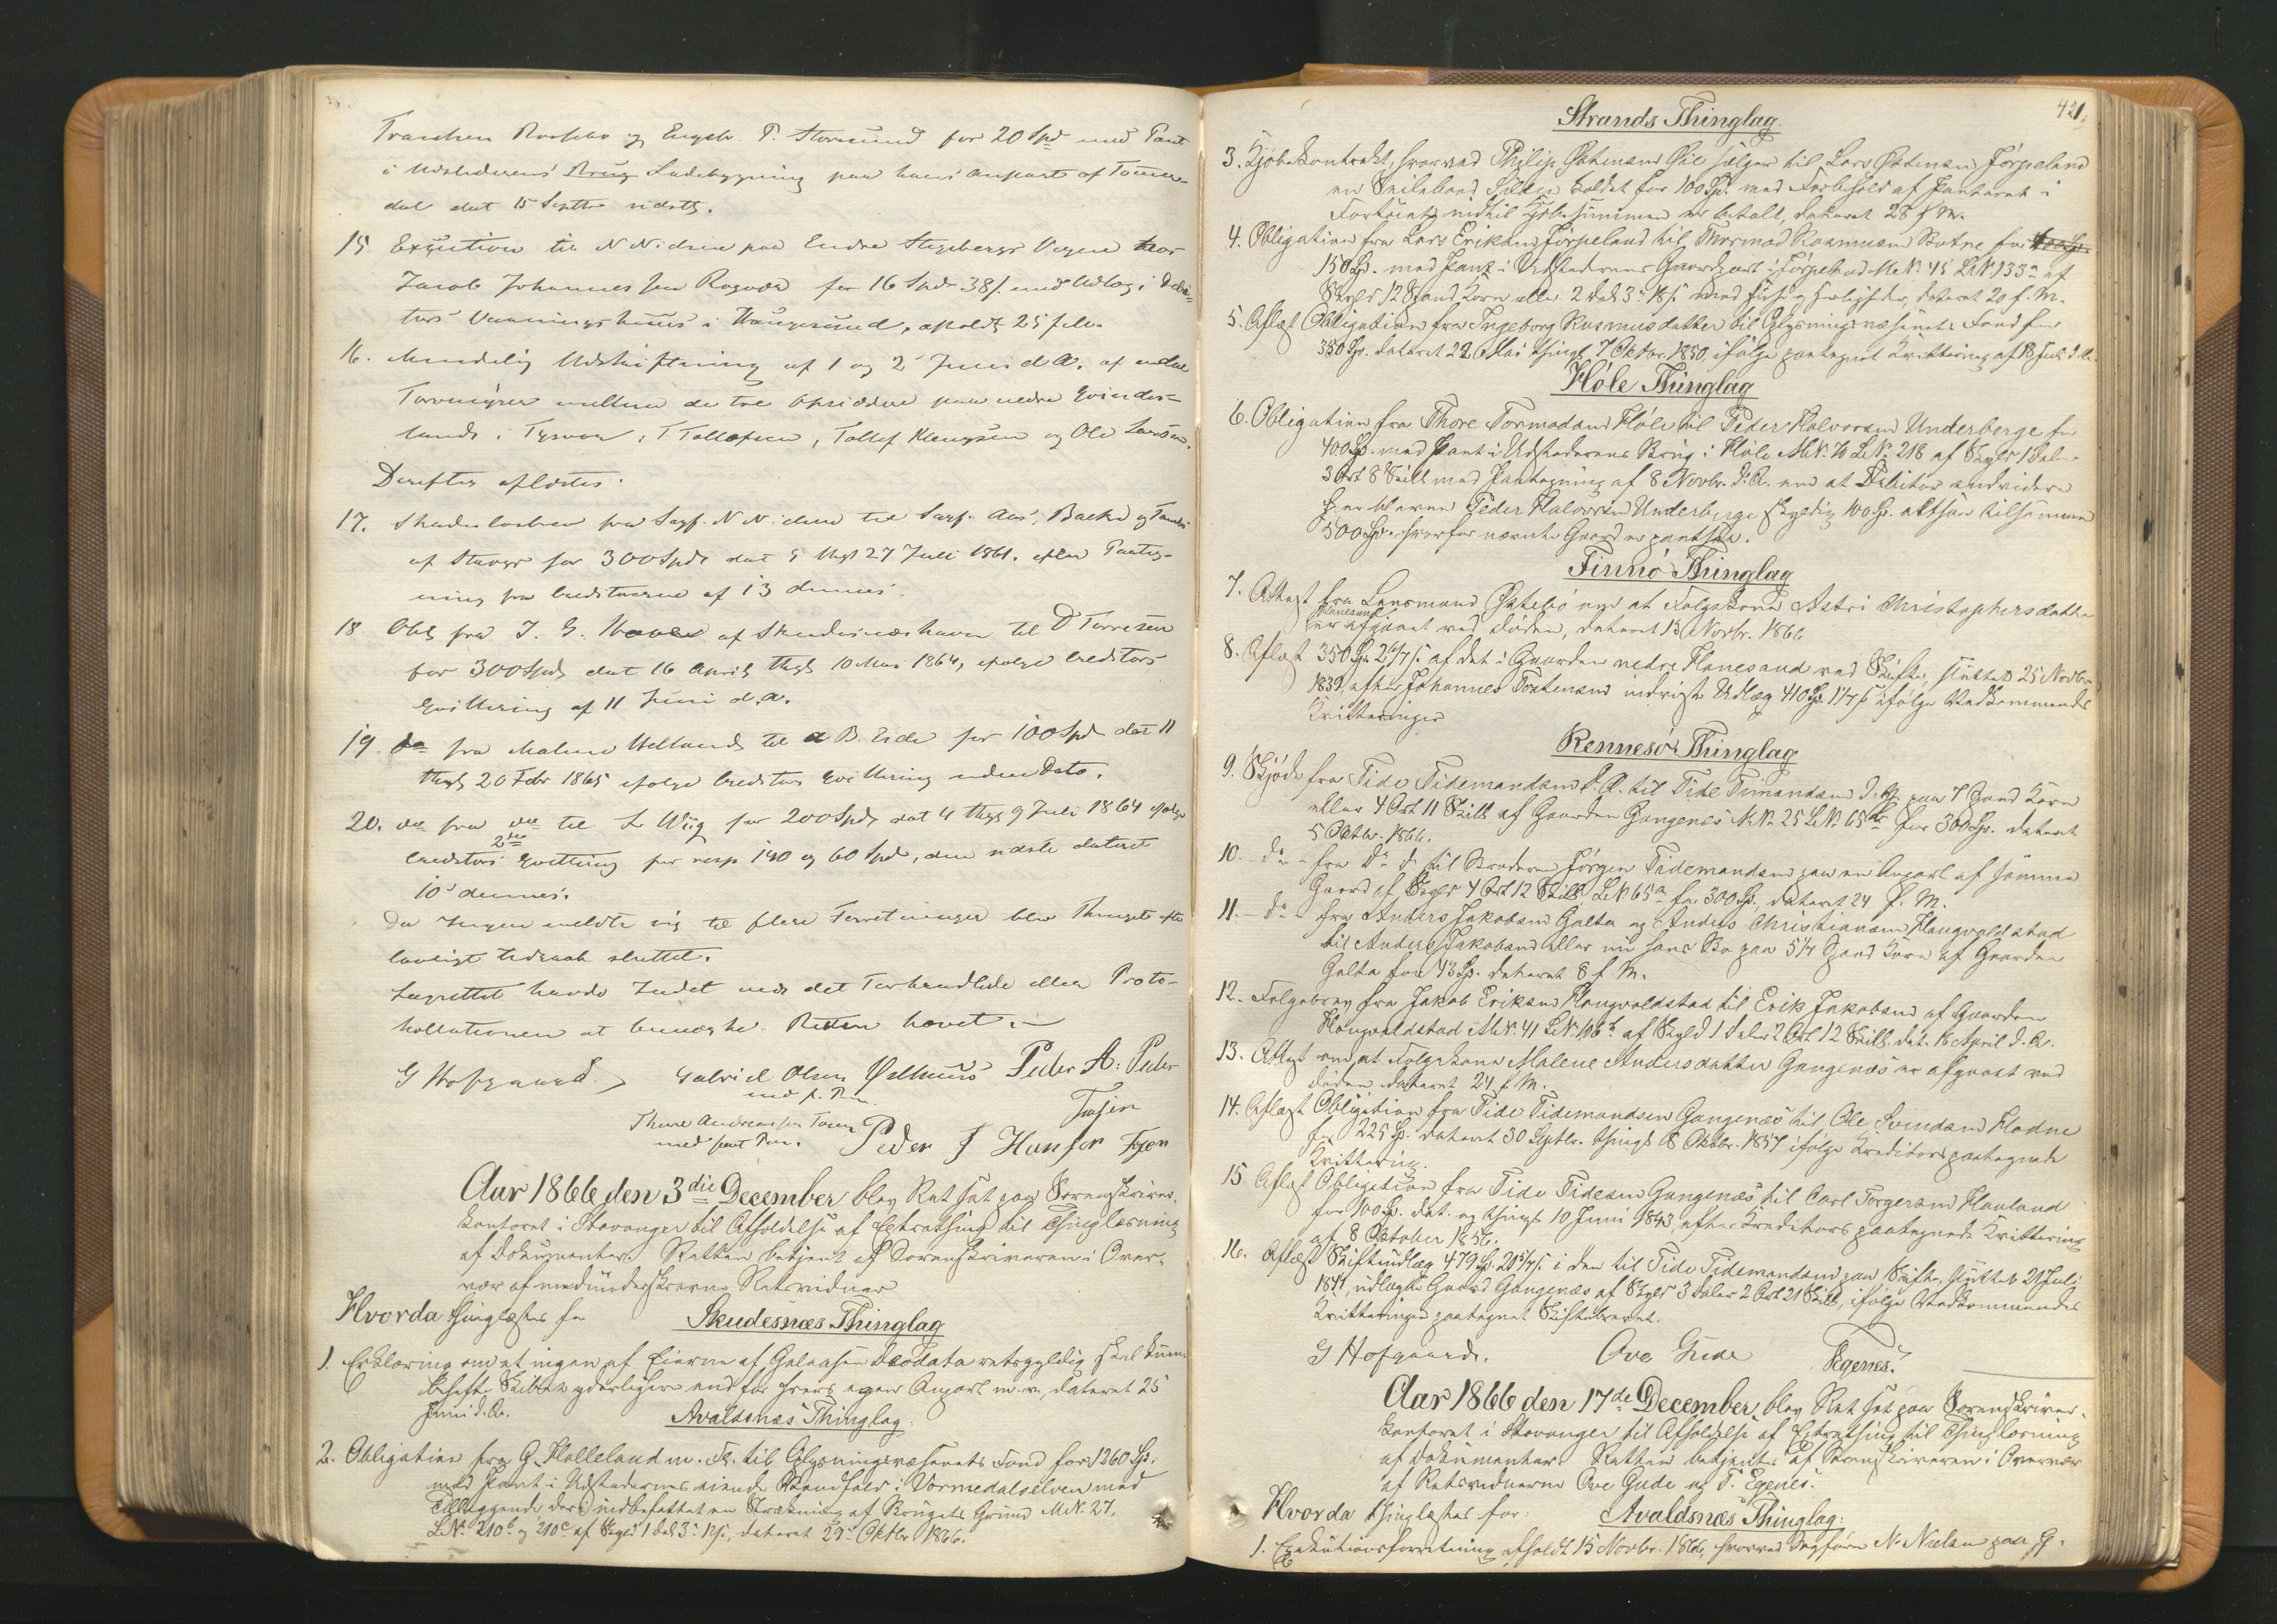 Trancken og Engelb. P. Storesund for 20 Spd med Pant
i Udstederens Brug Ladebygning paa hans anpart af
dal dat 15 Septbr sidstl.
15. Execution til N Nielsen paa Endre Stegebergs Vegne hos
Jacob Johannessen for 16 Spd 38 s. med Udlæg i Debi-
tors Vaaningshuus i Haugesund, afholdt 25 
16. Mindelig Udskiftning af 1 og 2 Juni d. A. af endeel
Torvmyrer mellem de tre Opsiddere paa nedre Qvinnes-
land i Tysvær, T Tollefsen, Tollef og Ole Larsen.
Derefter aflæstes:
17. Skadesløsbrev fra Sagf. N Nielsen til Sagf. Aas, Backe og
af Stavgr for 300 Spd dat 5 thgl 27 Juli 1861, efter Paateg-
ning fra Creditorerne af 13 dennes.
18 Obl fra J. G. af Skudesnæshavn til D Torresen
for 300 Spd dat 16 April thgl 10 Mai 1864, ifølge Creditors
Qvittering af 11 Juni d. a.
19. do fra Malene Helland til B. Eide for 100 Spd dat 11
thgl 20 Febr 1865 ifølge Creditors Qvittering uden Dato.
20. do fra do til L Wiig for 200 Spd dat 4 thgl 9 Juli 1864 ifølge
2de
Creditors Qvittering for resp 140 og 60 Spd, den sidste dateret
10 dennes.
Da Ingen meldte sig til flere Forretninger blev Thinget efter
lovligt Udraab sluttet.
Laugrettet havde Intet ved det Forhandlede eller Proto-
kollationen at bemærke. Retten hævet.
G Hofgaard. Gabriel Olsen Peder A: Peder
med p. Pen.
Thore Andreassen
med ført Pen. Peder J Hansen
Aar 1866 den 3die December blev Ret sat paa Sorenskriver-
kontoret i Stavanger til Afholdelse af Extrathing til Thinglæsning
af Dokumenter. Retten betjent af Sorenskriveren i Over-
vær af medunderskrevne Retsvidner
Hvorda thinglæstes for Skudesnæs Thinglag
1. Erklæring om at ingen af Eierne af Galeasen Deodata retsgyldig skal kunne
behefte Skibet yderligere end for hvers egen Anpart m. v., dateret 25
Juni d. A.
Avaldsnæs Thinglag.
2. Obligation fra G. Helleland m. Fl. til Oplysningsvæsenets Fond for 1260 Sp.
med Pant i Udstedernes eiende Vandfald i Vormedalselven med
Tilliggende deri indbefattet en Strækning af Brugets Grund M.N. 27,
L.N. 210b og 210c af Skyld 1 Dal. 3 s., dateret 29 Oktbr 1866.
421.
Strands Thinglag.
3. Kjøbekontrakt, hvorved Philip Østensens Øie sælger til Lars Østensen Jørpeland
en Seilebaad kaldet for 100 Sp. med Forbehold af Panteret i
Fartøiet indtil Kjøbesummen er betalt, dateret 28 f. M.
4. Obligation fra Lars Eriksen Jørpeland til Thormod Rasmussen Botne for
150 Sp. med Pant i Udstederens Gaardpart i Jørpeland M.N. 45 L.N. 133a af
Skyld 12 Spand Korn eller 2 Dal. 3 18 s. med Huse og Herligheder, dateret 20 f. M.
5. Aflæst Obligation fra Ingeborg Rasmusdatter til Oplysningsvæsenets Fond for
350 Sp. dateret 22 Mai thingl. 7 Oktbr. 1850, ifølge paategnet Kvittering af 18 Juli d. A.
Høle Thinglag
6. Obligation fra Thore Tormodsens Høle til Peder Halvorsen Underberge for
400 Sp. med Pant i Udstederens Brug i Høle M.N. 70 L.N. 218 af Skyld 1 Daler
3 Ort 8 Skill med Paategning af 8 Novbr. d. A. om at Debitor endvidere
er bleven Peder Halvorsen Underberge skyldig 100 Sp. altsaa tilsammen
500 Sp. hvorfor nævnte Gaard er pantsat.
Finnø Thinglag
7. Attest fra Lensmand Østebø om at Folgekone Astri Christophersdatter
Hanesand
er afgaaet ved Døden, dateret 13 Novbr. 1866
8. Aflæst 350 Sp. 2 6/7 s. af det i Gaarden nedre Hanesand ved Skifte, sluttet 25 Novbr.
1839, efter Johannes Tostensens indviste Udlæg 410 Sp. 1 1/7 s. ifølge Vedkommendes
Kvitteringer
Rennesø Thinglag
9. Skjøde fra Tide Tidemandsen d. Æ. til Tide Timandsen d. y. paa 7 Spand Korn
eller 4 Ort 11 Skill af Gaarden Gangenæs M.N. 25 L.N. 65b for 300 Sp. dateret
5 Oktbr. 1866.
10. do fra do do til Broderen Jørgen Tidemandsen paa en Anpart af samme
Gaard af Skyld 4 Ort 12 Skill L.N. 65a for 300 Sp., dateret 24 f. M.
11. do fra Anders Jakobsen Galta og Anders Christiansen Haugvaldstad
til Anders Jakobsen eller nu hans Bo paa 5 1/4 Spand Korn af Gaarden
Galta for 43 Sp. dateret 8 f. M.
12. Folgebrev fra Jakob Eriksen Haugvaldstad til Erik Jakobsen af Gaarden
Haugvaldstad M.N. 41 L.N. 106b af Skyld 1 Daler 2 Ort 12 Skill. dat. 16 April d. A.
13. Attest om at Folgekone Malene Andersdatter Gangenæs er afgaaet ved
Døden dateret 24 f. M.
14. Aflæst Obligation fra Tide Tidemandsen Gangenæs til Ole Svendsen Hodne
for 225 Sp. dateret 30 Septbr. thingl. 8 Oktbr. 1857 ifølge Kreditors paategnede
Kvittering.
15. Aflæst Obligation fra Tide Tidesen Gangenæs til Carl Torgersens Hauland
for 100 Sp. dat. og thingl. 10 Juni 1843, efter Kreditors paategnede Kvittering
af 8 Oktober 1856.
16. Aflæst Skifteudlæg 479 Sp. 20 5/7 s. i den til Tide Tidemandsen paa Skifte, sluttet 21 Juli
1841, udlagte Gaard Gangenæs af Skyld 3 Daler 2 Ort 21 Skill, ifølge Vedkommendes
Kvitteringer paategnet Skiftebrevet.
G Hofgaard. Ove Gude Egenes.
Aar 1866 den 17de December, blev Ret sat paa Sorenskriver-
kontoret i Stavanger til Afholdelse af Extrathing til Thinglæsning
af Dokumenter. Retten betjentes af Sorenskriveren i Overvær
af Retsvidnerne Ove Gude og T. Egenes.
Hvorda thinglæstes for: Avaldsnæs Thinglag:
1. Exekutionsforretning afholdt 15 Novbr. 1866, hvorved Sagfører N. Nielsen paa G.